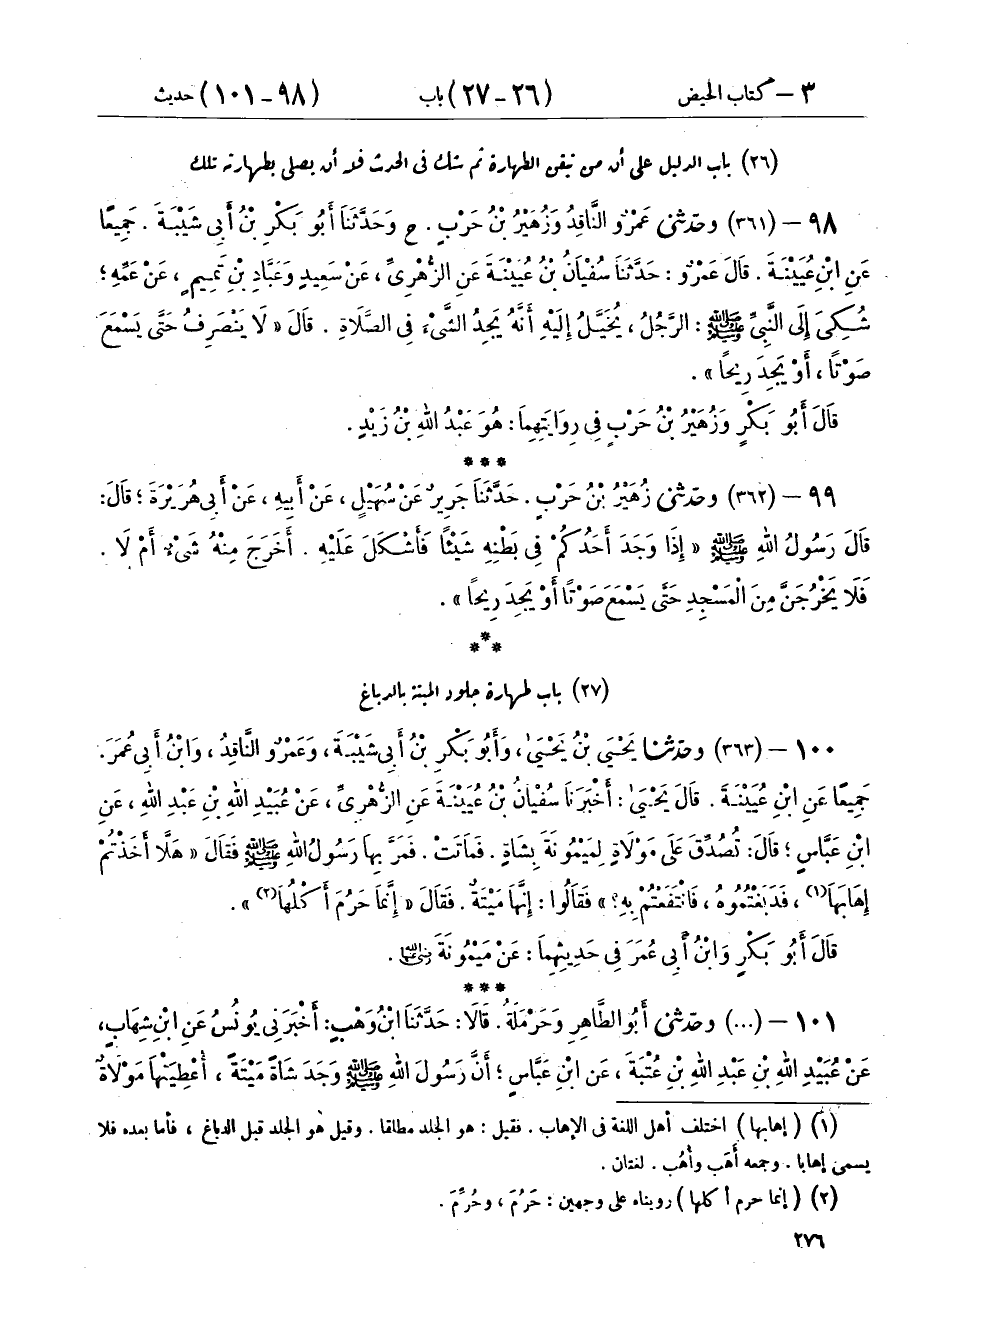 ٣ – كتاب الحيض (٢٦-٢٧) باب (٩٨-١٠١) حديث
(٢٦) باب الدليل على أن من تيقن الطهارة ثم شك فى الحدث فله أن يصلى بطهارته تلك
٩٨ – (٣٦١) وحَدَّثَنِي عَمْرٌو النَّاقِدُ وَزُهَيْرُ بْنُ حَرْبٍ . ح وَحَدَّثَنَا أَبُو بَكْرِ بْنُ أَبِي شَيْبَةَ . جَمِيعًا
عَنِ ابْنِ عُيَيْنَةَ . قَالَ عَمْرٌو : حَدَّثَنَا سُفْيَانُ بْنُ عُيَيْنَةَ عَنِ الزُّهْرِيِّ ، عَنْ سَعِيدٍ وَعَبَّادِ بْنِ تَمِيمٍ ، عَنْ عَمِّهِ ؛
شُكِيَ إِلَى النَّبِيِّ ﷺ : الرَّجُلُ ، يُخَيَّلُ إِلَيْهِ أَنَّهُ يَجِدُ الشَّيْءَ فِي الصَّلَاةِ . قَالَ « لَا يَنْصَرِفُ حَتَّى يَسْمَعَ
صَوْتًا ، أَوْ يَجِدَ رِيحًا » .
قَالَ أَبُو بَكْرٍ وَزُهَيْرُ بْنُ حَرْبٍ فِي رِوَايَتِهِمَا : هُوَ عَبْدُ اللهِ بْنُ زَيْدٍ .
***
٩٩ – (٣٦٢) وحَدَّثَنِي زُهَيْرُ بْنُ حَرْبٍ . حَدَّثَنَا جَرِيرٌ عَنْ سُهَيْلٍ ، عَنْ أَبِيهِ ، عَنْ أَبِي هُرَيْرَةَ ؛ قَالَ :
قَالَ رَسُولُ اللهِ ﷺ « إِذَا وَجَدَ أَحَدُكُمْ فِي بَطْنِهِ شَيْئًا فَأَشْكَلَ عَلَيْهِ . أَخَرَجَ مِنْهُ شَيْءٌ أَمْ لَا .
فَلَا يَخْرُجَنَّ مِنَ الْمَسْجِدِ حَتَّى يَسْمَعَ صَوْتًا أَوْ يَجِدَ رِيحًا » .
***
(٢٧) باب طهارة جلود الميتة بالدباغ
١٠٠ – (٣٦٣) وحَدَّثَنَا يَحْيَى بْنُ يَحْيَى ، وَأَبُو بَكْرِ بْنُ أَبِي شَيْبَةَ ، وَعَمْرٌو النَّاقِدُ ، وَابْنُ أَبِي عُمَرَ .
جَمِيعًا عَنِ ابْنِ عُيَيْنَةَ . قَالَ يَحْيَى : أَخْبَرَنَا سُفْيَانُ بْنُ عُيَيْنَةَ عَنِ الزُّهْرِيِّ ، عَنْ عُبَيْدِ اللهِ بْنِ عَبْدِ اللهِ ، عَنِ
ابْنِ عَبَّاسٍ ؛ قَالَ : تُصُدِّقَ عَلَى مَوْلَاةٍ لِمَيْمُونَةَ بِشَاةٍ . فَمَاتَتْ . فَمَرَّ بِهَا رَسُولُ اللهِ ﷺ فَقَالَ « هَلَّا أَخَذْتُمْ
إِهَابَهَا(١) ، فَدَبَغْتُمُوهُ ، فَانْتَفَعْتُمْ بِهِ ؟ » فَقَالُوا : إِنَّهَا مَيْتَةٌ . فَقَالَ « إِنَّمَا حَرُمَ أَكْلُهَا(٢) » .
قَالَ أَبُو بَكْرٍ وَابْنُ أَبِي عُمَرَ فِي حَدِيثِهِمَا : عَنْ مَيْمُونَةَ رضي الله عنها .
***
١٠١ – (...) وحَدَّثَنِي أَبُو الطَّاهِرِ وَحَرْمَلَةُ . قَالَا : حَدَّثَنَا ابْنُ وَهْبٍ : أَخْبَرَنِي يُونُسُ عَنِ ابْنِ شِهَابٍ ،
عَنْ عُبَيْدِ اللهِ بْنِ عَبْدِ اللهِ بْنِ عُتْبَةَ ، عَنِ ابْنِ عَبَّاسٍ ؛ أَنَّ رَسُولَ اللهِ ﷺ وَجَدَ شَاةً مَيْتَةً ، أُعْطِيَتْهَا مَوْلَاةٌ
(١) ( إهابها ) اختلف أهل اللغة فى الإهاب . فقيل : هو الجلد مطلقا . وقيل هو الجلد قبل الدباغ ، فأما بعده فلا
يسمى إهابا . وجمعه أَهَب وأُهُب . لغتان .
(٢) ( إنما حرم أكلها ) رويناه على وجهين : حَرُمَ ، وحُرِّمَ .
٢٧٦